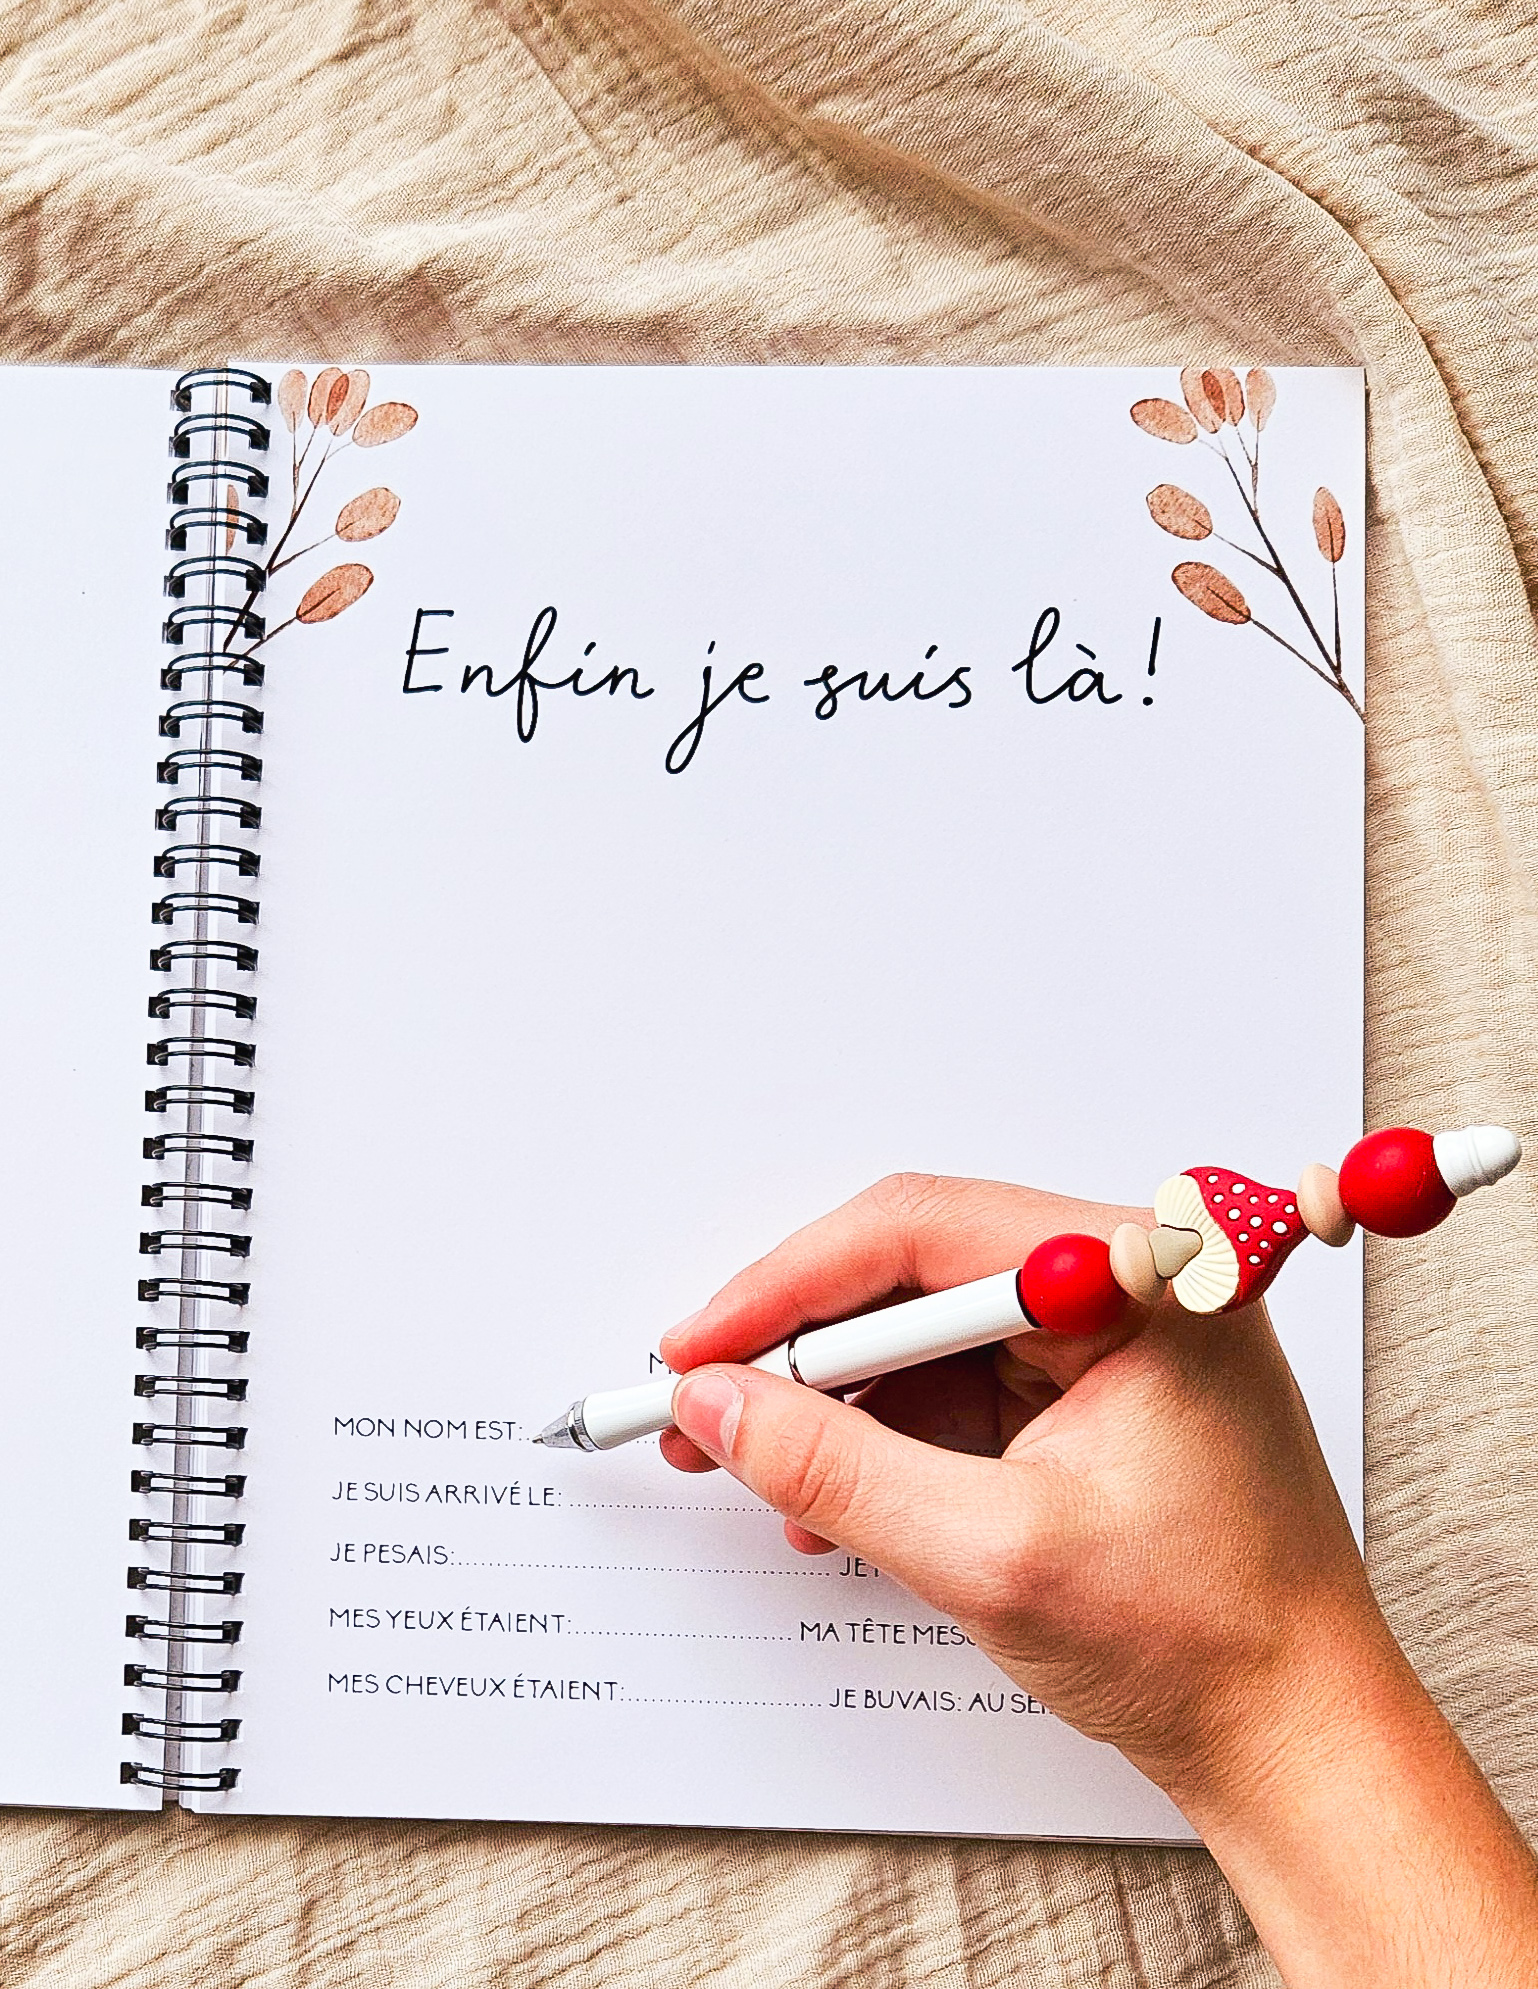 Enfin je suis là!
MON NOM EST:
JE SUIS ARRIVÉ LE:
JE PESAIS: JE
MES YEUX ÉTAIENT: MA TÊTE
MES CHEVEUX ÉTAIENT: JE BUVAIS: AU